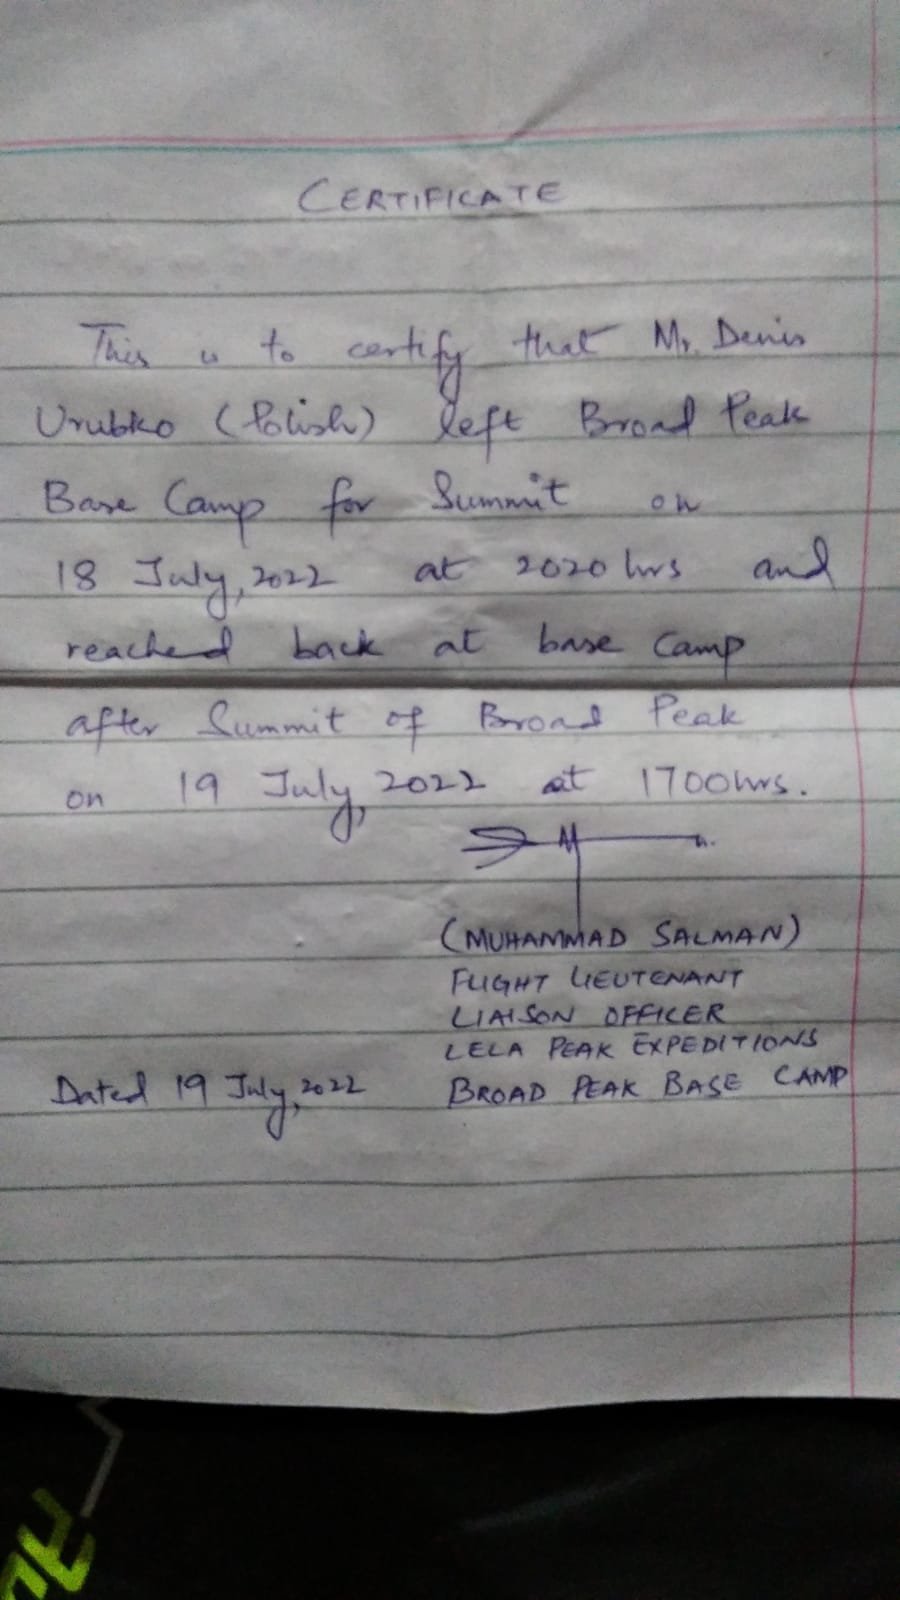 CERTIFICATE
This is to certify that Mr. Denis
Urubko (Polish) left Broad Peak
Base Camp for Summit on
18 July, 2022 at 2020 hrs and
reached back at base camp
after Summit of Broad Peak
on 19 July, 2022 at 1700hrs.
(MUHAMMAD SALMAN)
FLIGHT LIEUTENANT
LIAISON OFFICER
LELA PEAK EXPEDITIONS
Dated 19 July, 2022 BROAD PEAK BASE CAMP